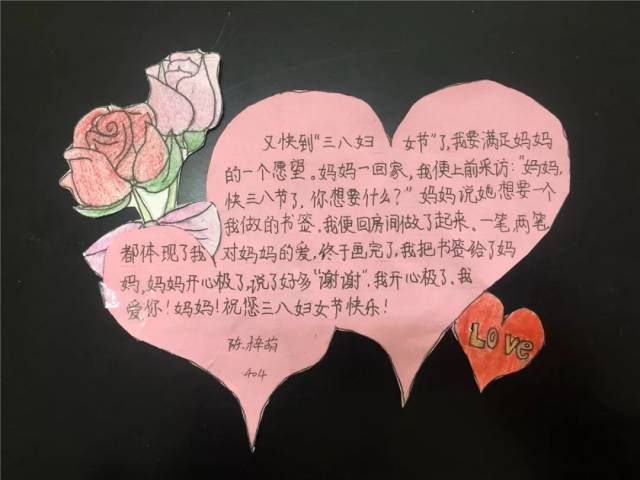 又快到“三八妇女节”了,我要满足妈妈
的一个愿望。妈妈一回家,我便上前采访:“妈妈,
快三八节了,你想要什么?”妈妈说她想要一个
我做的书签,我便回房间做了起来。一笔,两笔,
都体现了我对妈妈的爱,终于画完了,我把书签给了妈
妈,妈妈开心极了,说了好多“谢谢”,我开心极了,我
爱你!妈妈!祝您三八妇女节快乐!
陈梓萌
404
Love